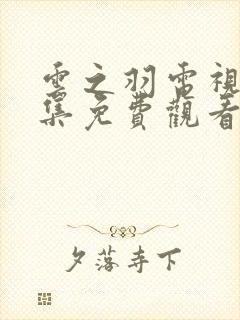 雲之羽電視
集免費觀看
夕落寺下